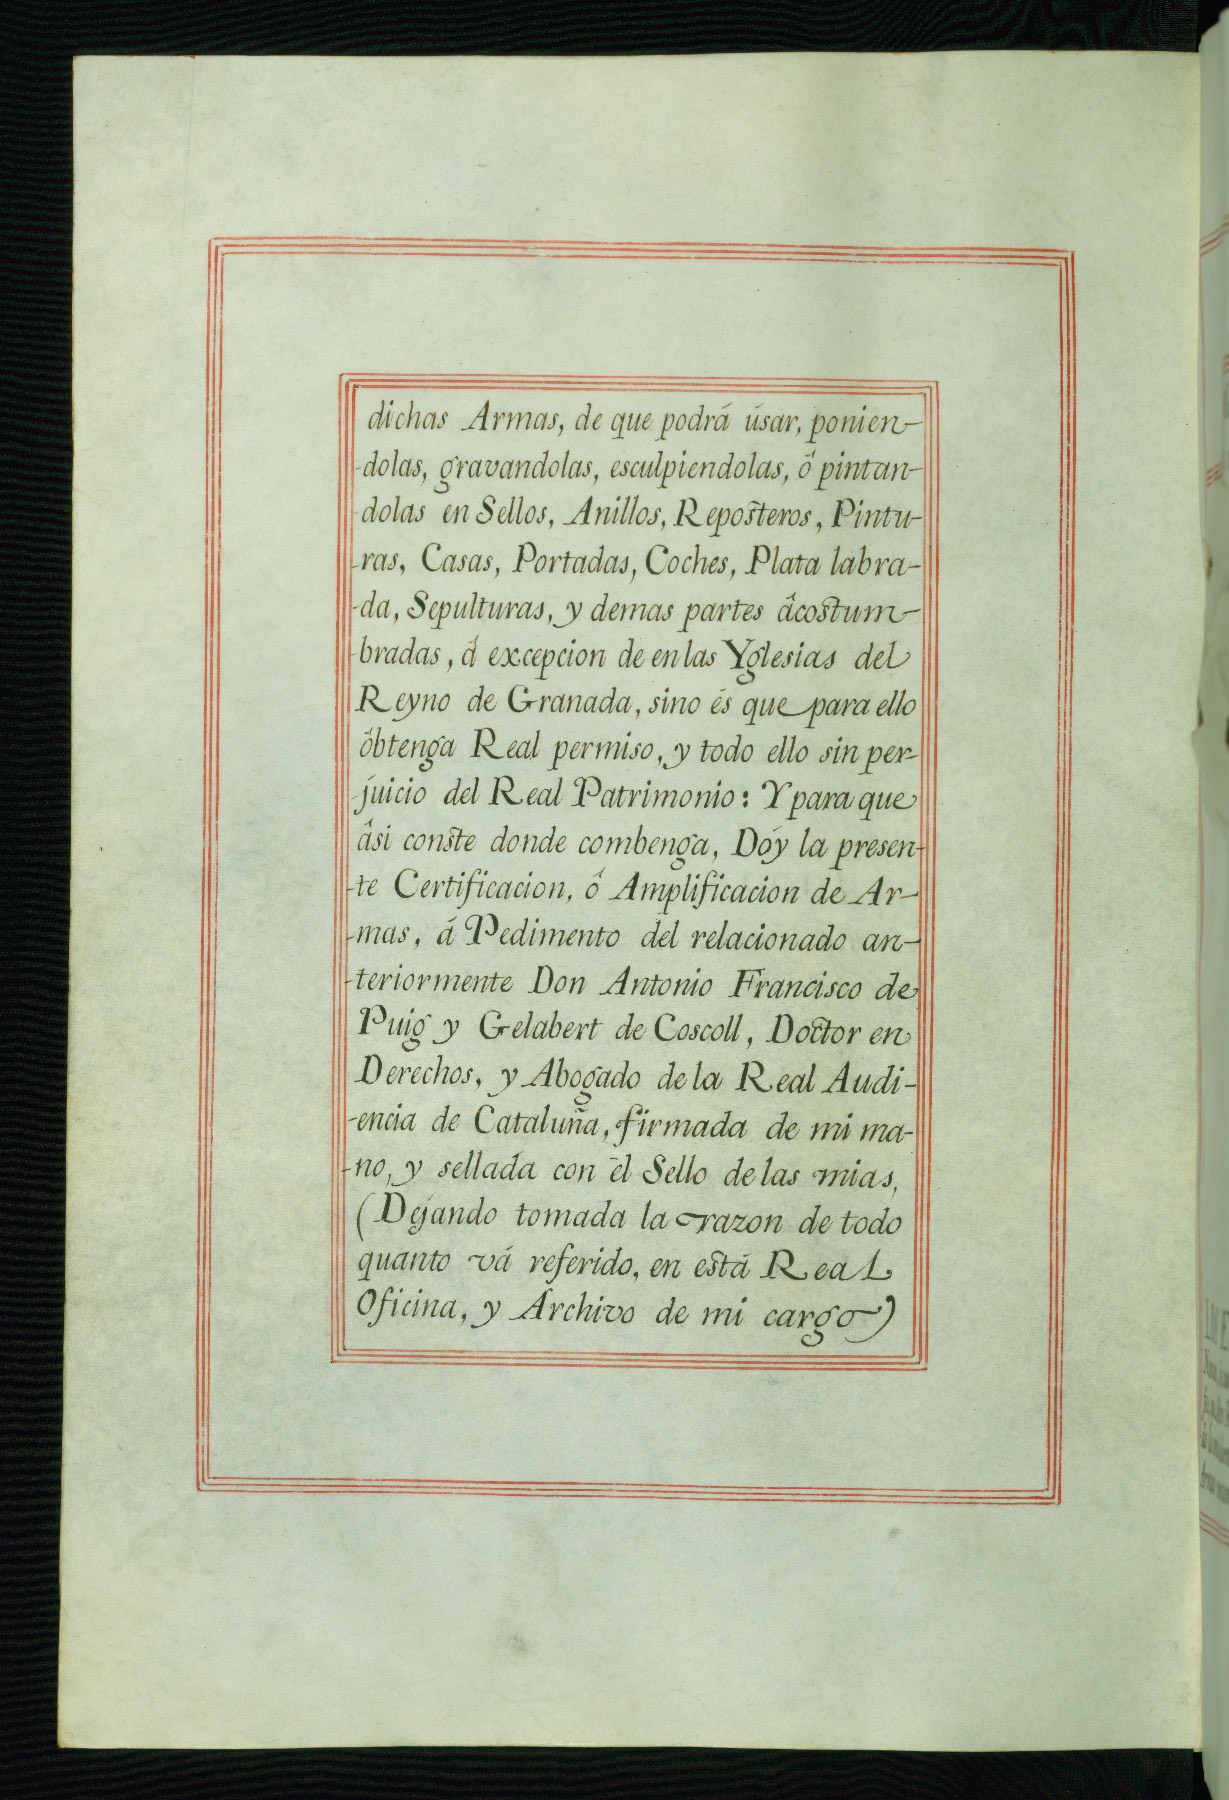 dichas Armas, de que podrá úsar, ponien-
-dolas, gravandolas, esculpiendolas, ô pintan-
-dolas en Sellos, Anillos, Reposteros, Pintu-
-ras, Casas, Portadas, Coches, Plata labra-
-da, Sepulturas, y demas partes âcostum-
-bradas, â excepcion de en las Yglesias del
Reyno de Granada, sino és que para ello
ôbtenga Real permiso, y todo ello sin per-
-juicio del Real Patrimonio: Y para que
âsi conste donde combenga, Dóy la presen-
-te Certificacion, ô Amplificacion de Ar-
-mas, á Pedimento del relacionado an-
-teriormente Don Antonio Francisco de
Puig y Gelabert de Coscoll, Doctor en
Derechos, y Abogado de la Real Audi-
-encia de Cataluña, firmada de mi ma-
-no, y sellada con él Sello de las mias,
(Dejando tomada la razon de todo
quanto vá referido, en está Real
Oficina, y Archivo de mi cargo)